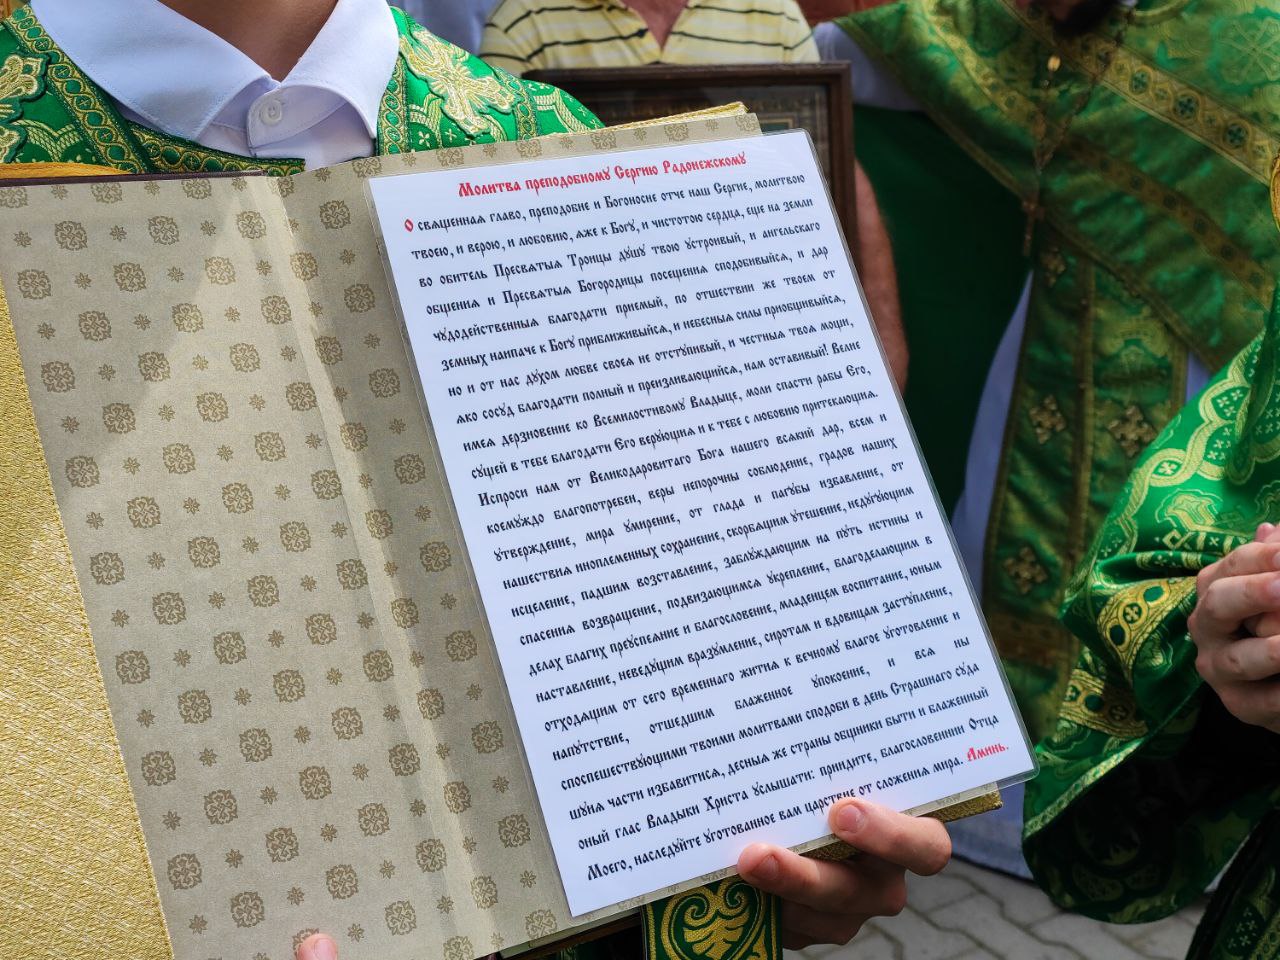 Молитва преподобному Сергию Радонежскому
О священная главо, преподобне и Богоносне отче наш Сергие, молитвою
твоею, и верою, и любовию, яже к Богу, и чистотою сердца, еще на земли
во обитель Пресвятыя Троицы душу твою устроивый, и ангельскаго
общения и Пресвятыя Богородицы посещения сподобивыйся, и дар
чудодейственныя благодати приемый, по отшествии же твоем от
земных наипаче к Богу приближивыйся, и небесныя силы приобщивыйся,
но и от нас духом любве своея не отступивый, и честныя твоя мощи,
яко сосуд благодати полный и преизливающийся, нам оставивый! Велие
имея дерзновение ко Всемилостивому Владыце, моли спасти рабы Его,
сущей в тебе благодати Его верующия и к тебе с любовию притекающия.
Испроси нам от Великодаровитаго Бога нашего всякий дар, всем и
коемуждо благопотребен, веры непорочны соблюдение, градов наших
утверждение, мира умирение, от глада и пагубы избавление, от
нашествия иноплеменных сохранение, скорбящим утешение, недугующим
исцеление, падшим возставление, заблуждающим на путь истины и
спасения возвращение, подвизающимся укрепление, благоделающим в
делах благих преуспеяние и благословение, младенцем воспитание, юным
наставление, неведущим вразумление, сиротам и вдовицам заступление,
отходящим от сего временнаго жития к вечному благое уготовление и
напутствие, отшедшим блаженное упокоение, и вся ны
споспешествующими твоими молитвами сподоби в день Страшнаго суда
шуия части избавитися, десныя же страны общники быти и блаженный
оный глас Владыки Христа услышати: приидите, благословеннии Отца
Моего, наследуйте уготованное вам царствие от сложения мира. Аминь.